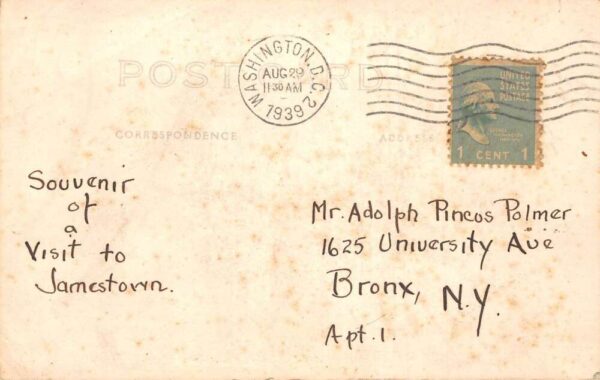 POST CARD
WASHINGTON, D.C. 2
AUG 29
11 30 AM
1939
UNITED
STATES
POSTAGE
1 CENT 1
CORRESPONDENCE
ADDRESS
Souvenir
of
a
Visit to
Jamestown.
Mr. Adolph Pincos Palmer
1625 University Ave
Bronx, N.Y.
Apt. 1.